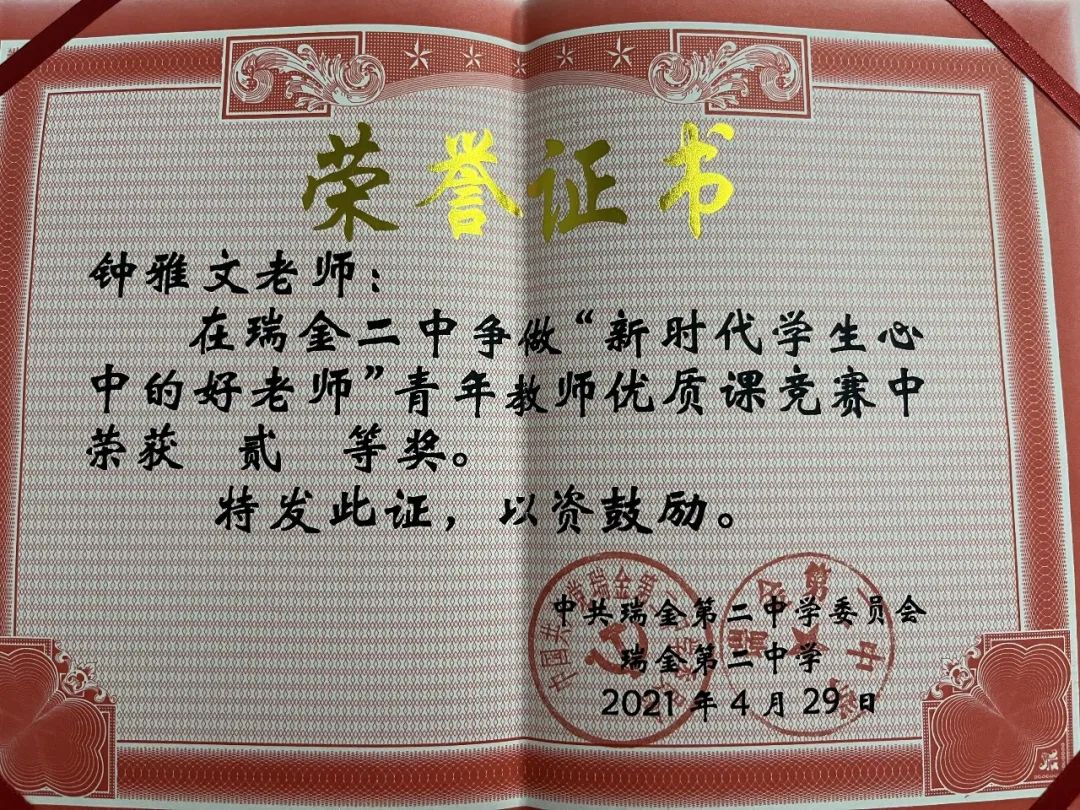 荣誉证书
钟雅文老师：
在瑞金二中争做“新时代学生心
中的好老师”青年教师优质课竞赛中
荣获 贰 等奖。
特发此证，以资鼓励。
中共瑞金第二中学委员会
瑞金第二中学
2021 年 4 月 29 日